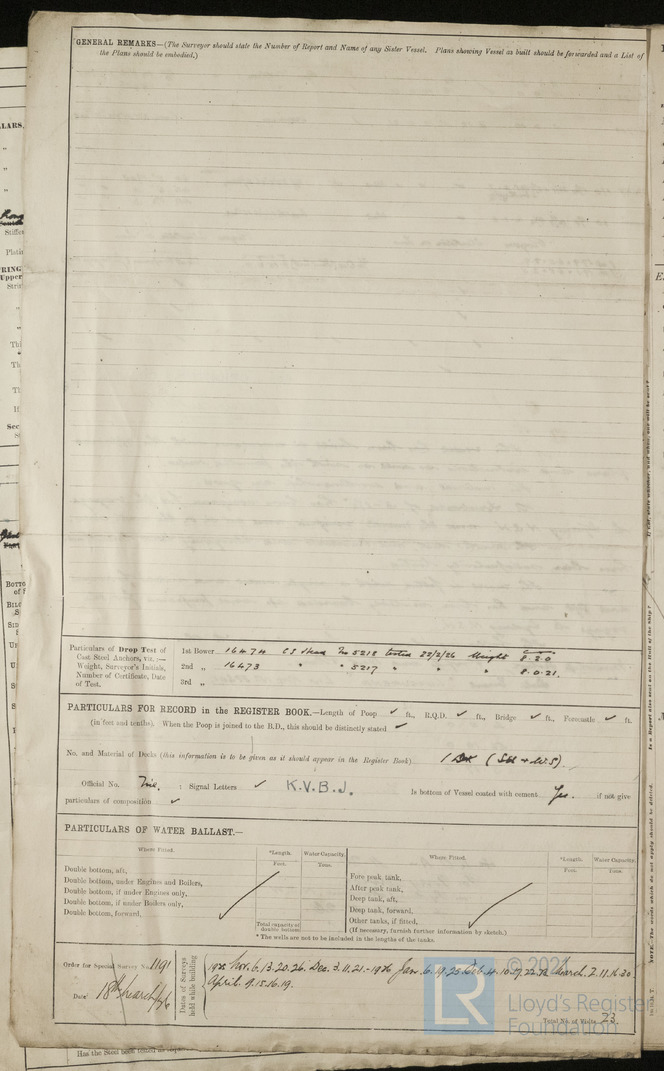 GENERAL REMARKS—(The Surveyor should state the Number of Report and Name of any Sister Vessel. Plans showing Vessel as built should be forwarded and a List of
the Plans should be embodied.)
Particulars of Drop Test of
Cast Steel Anchors, viz.:—
Weight, Surveyor's Initials,
Number of Certificate, Date
of Test.
1st Bower 16474 CS Head No 5218 tested 22/2/26 Weight 8.2.0
2nd „ 16473 " " 5217 " " 8.0.21.
3rd „
PARTICULARS FOR RECORD in the REGISTER BOOK.—Length of Poop ✓ ft., R.Q.D. ✓ ft., Bridge ✓ ft., Forecastle ✓ ft.
(in feet and tenths). When the Poop is joined to the B.D., this should be distinctly stated ✓
No. and Material of Decks (this information is to be given as it should appear in the Register Book) 1 Dk
Official No. : Signal Letters ✓ K.V.B.J. Is bottom of Vessel coated with cement Yes. if not give
particulars of composition ✓
PARTICULARS OF WATER BALLAST.—
Where Fitted. *Length. Water-Capacity. Where Fitted. *Length. Water Capacity.
Feet. Tons. Feet. Tons.
Double bottom, aft,
Double bottom, under Engines and Boilers,
Double bottom, if under Engines only,
Double bottom, if under Boilers only,
Double bottom, forward,
Total capacity of
double bottom
Fore peak tank,
After peak tank,
Deep tank, aft,
Deep tank, forward,
Other tanks, if fitted,
(If necessary, furnish further information by sketch.)
* The wells are not to be included in the lengths of the tanks.
Order for Special Survey No. 1191
Date 18th March/26
Dates of Surveys
held while building
1925 Nov. 6. 13. 20. 26. Dec. 3. 11. 21. - 1926 Jan. 6. 19. 25 Feb. 4. 10. 17. 22. March. 2. 11. 16. 30
April. 9. 15. 16. 19.
Total No. of Visits 23.
© 2021
LR
Lloyd's Register
Foundation